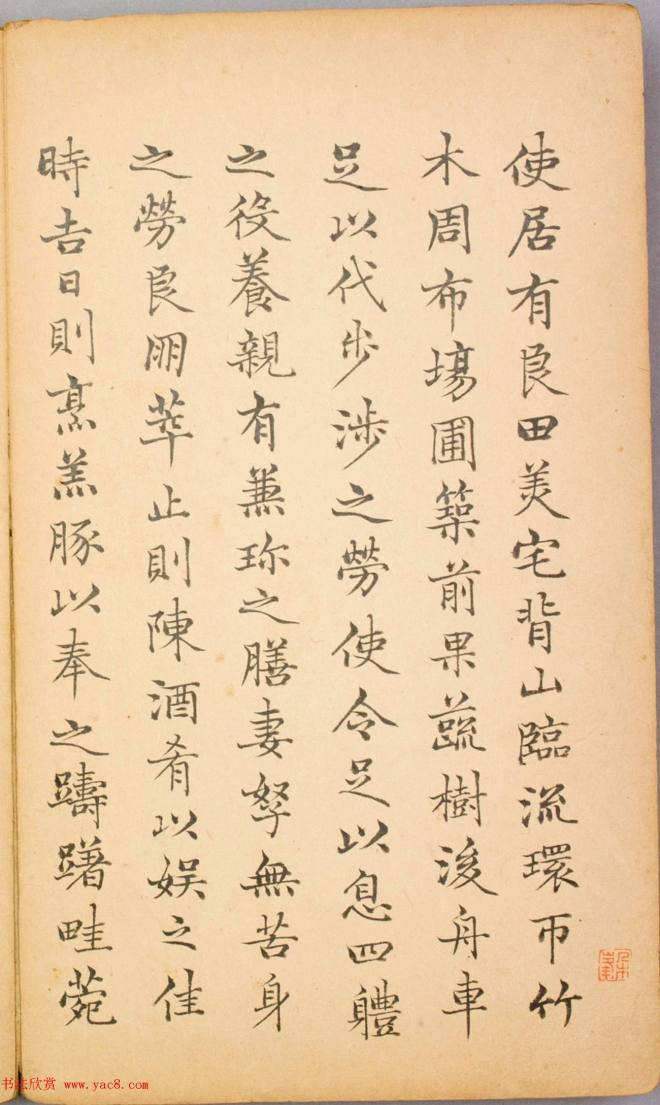 使居有良田美宅背山臨流環帀竹
木周布場圃築前果蔬樹後舟車
足以代步涉之勞使令足以息四體
之役養親有兼珎之膳妻孥無苦身
之勞良朋萃止則陳酒肴以娱之佳
時吉日則烹羔豚以奉之躊躇畦菀
书法欣赏 www.yac8.com